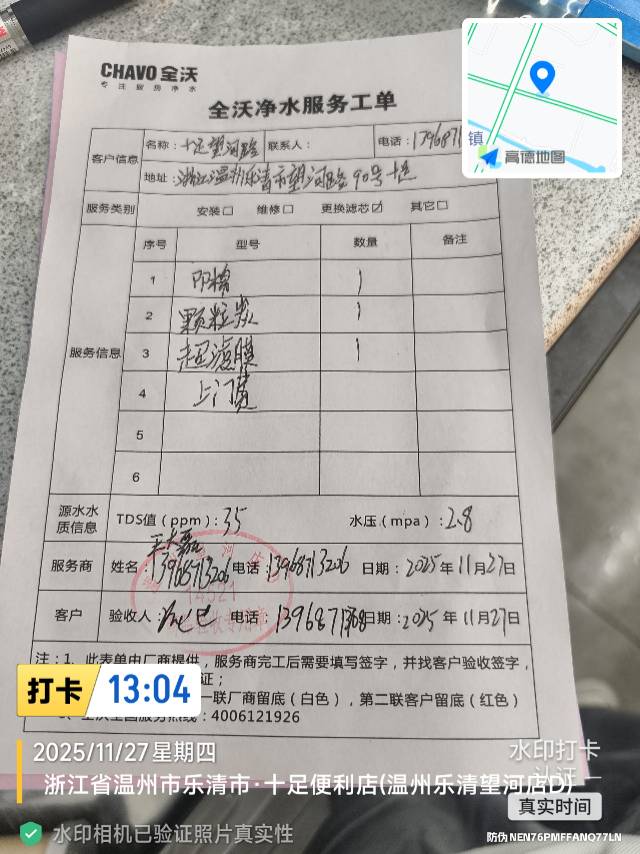 CHAVO 全沃
专注厨房净水
全沃净水服务工单
客户信息
名称：十足望河路 联系人： 电话：1396871
地址：浙江温州乐清市望河路90号十足
服务类别 安装□ 维修□ 更换滤芯☑ 其它□
服务信息
序号 型号 数量 备注
1 阻棉 1
2 颗粒炭 1
3 超滤膜 1
4 上门费
5
6
源水水质信息 TDS值（ppm）：35 水压（mpa）：2.8
服务商 姓名： 13968713206 电话：13968713206 日期：2025年11月27日
客户 验收人： 电话：1396871 日期：2025年11月27日
注：1、此表单由厂商提供，服务商完工后需要填写签字，并找客户验收签字，
证；
一联厂商留底（白色），第二联客户留底（红色）
：4006121926
镇
高德地图
打卡 13:04
2025/11/27 星期四
浙江省温州市乐清市·十足便利店(温州乐清望河店D)
水印打卡
认证
真实时间
水印相机已验证照片真实性
防伪 NEN76PMFFANQ77LN